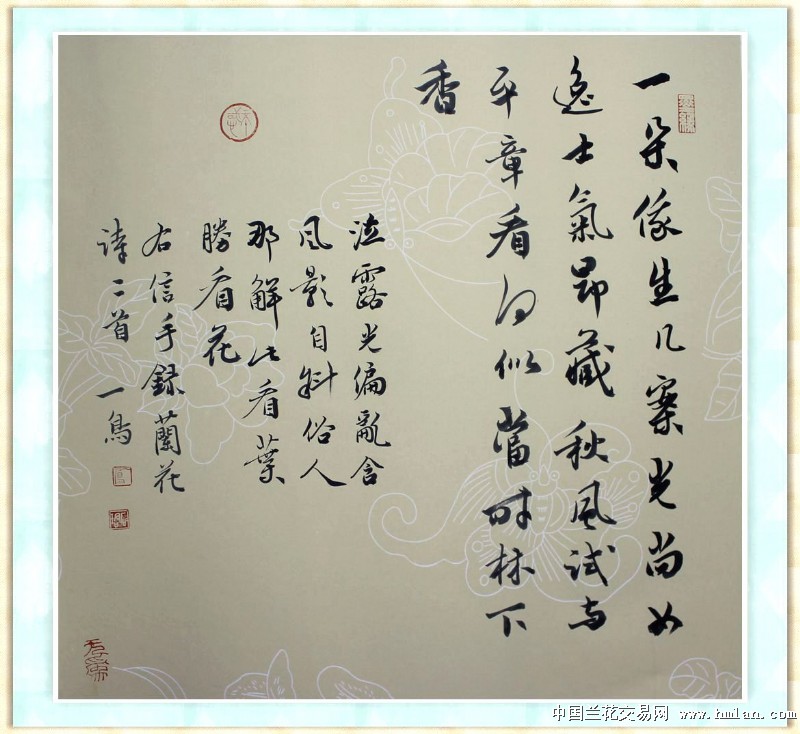 一朵俄生几案光尚如
逸士氣昂藏秋風試与
平章看何似當時林下
香
泣露光偏亂含
風影自斜俗人
那解此看葉
勝看花
右信手録蘭花
詩二首 一鳥
中国兰花交易网 www.hmlan.com